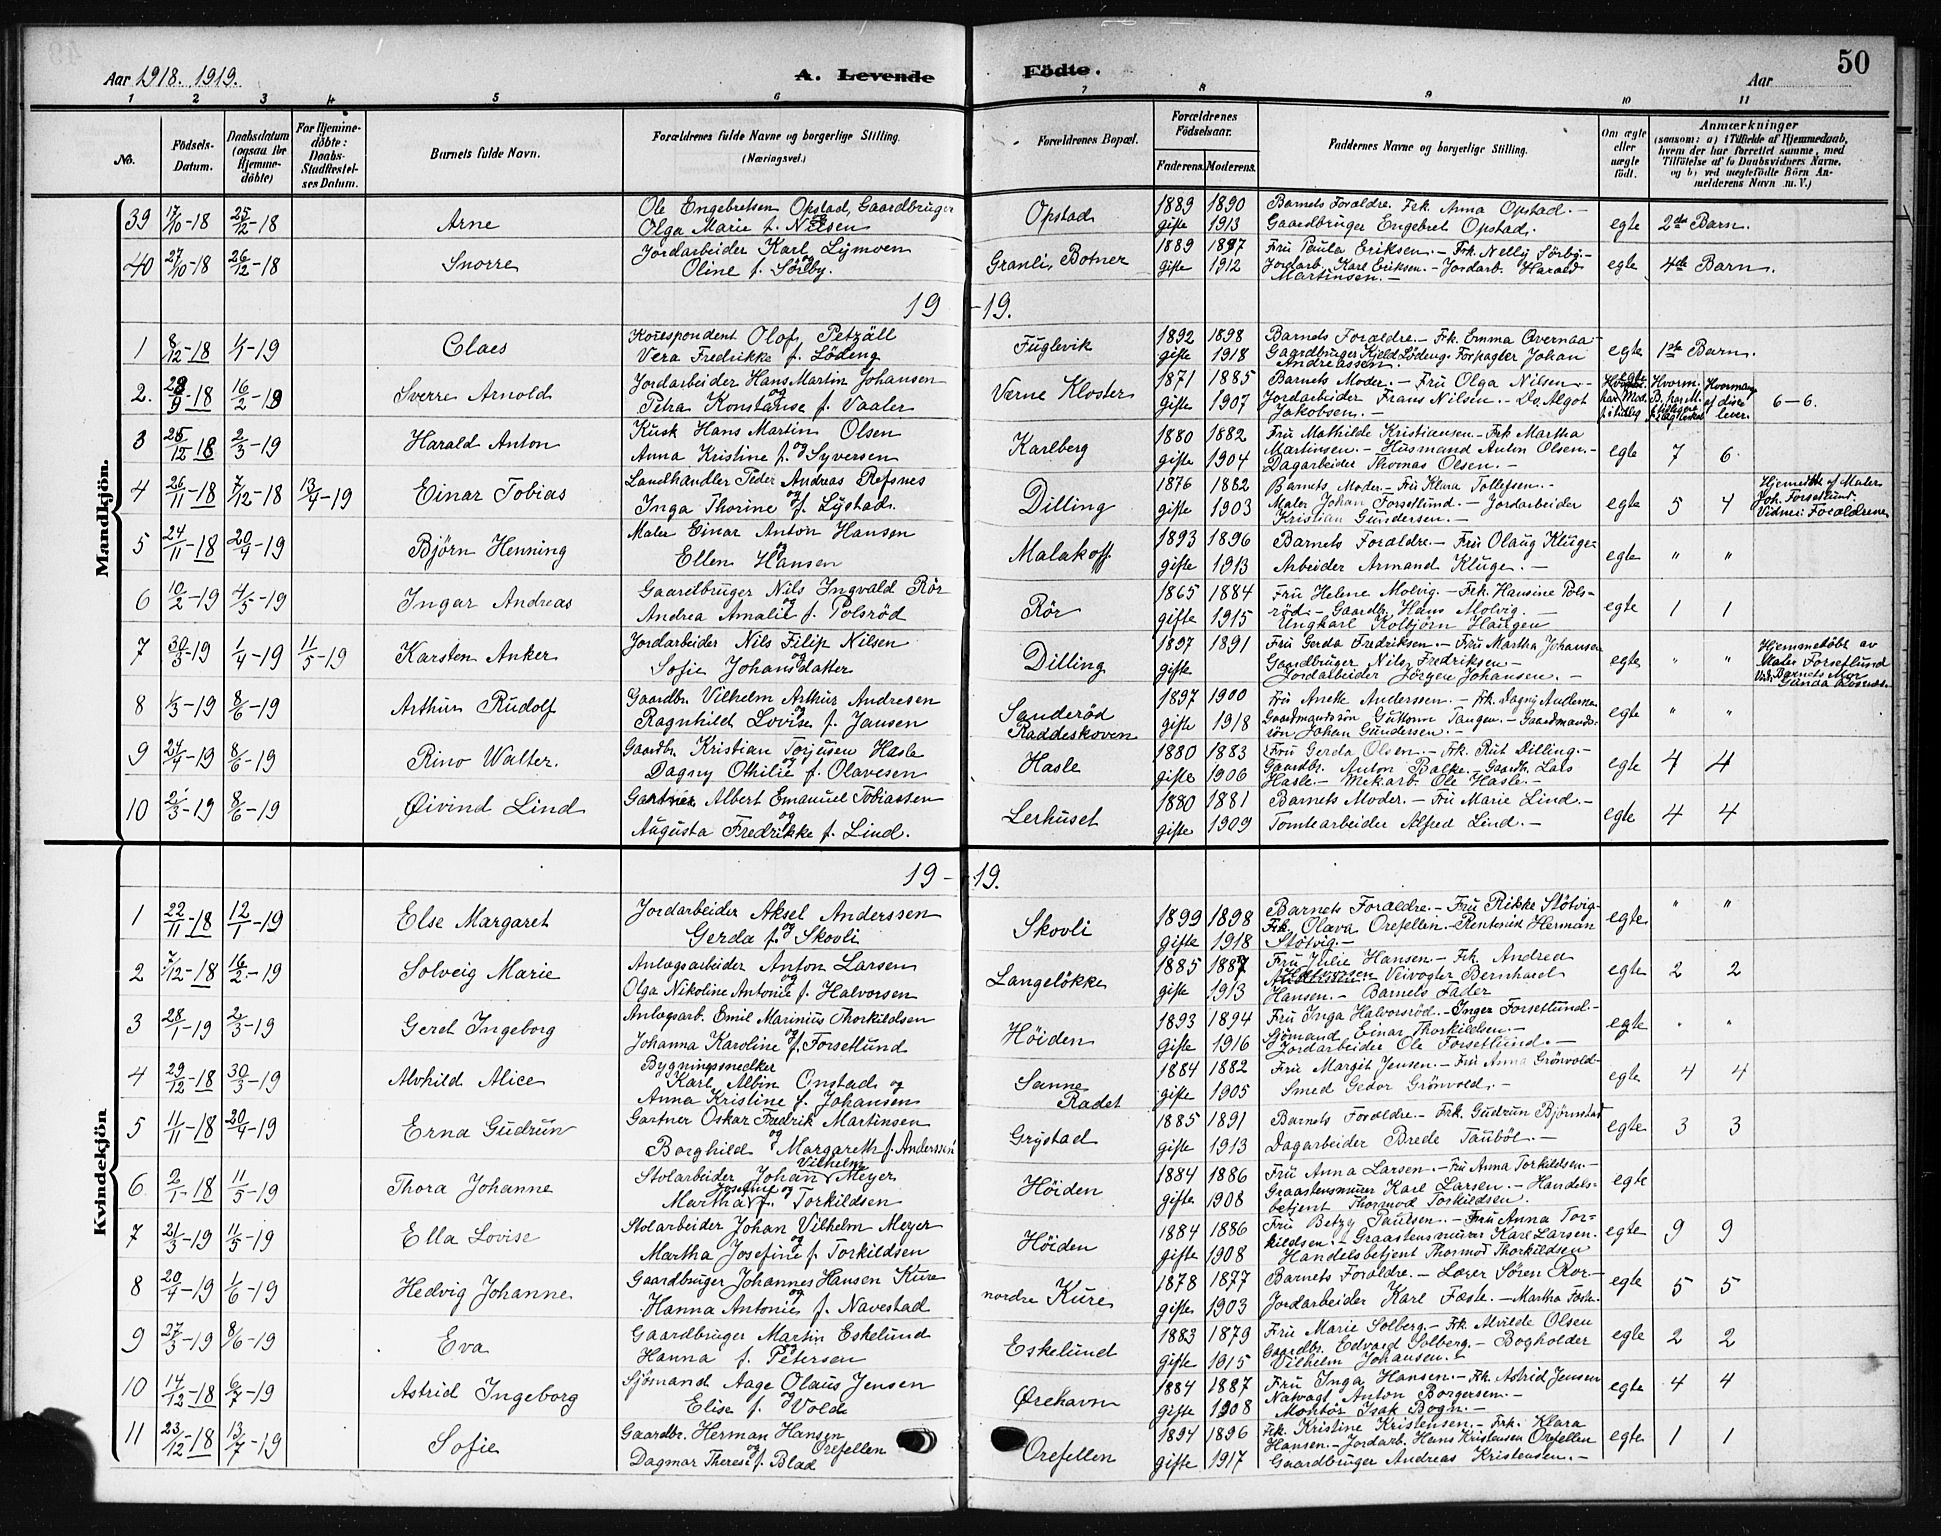 Aar 1918. 1919.
A. Levende Födte.
Aar
50
1 2 3 4 5 6 7 8 9 10 11
No.
Födsels-Datum.
Daabsdatum (ogsaa for Hjemme-döbte)
For Hjemme-döbte: Daabs-Stadfæstel-ses Datum.
Barnets fulde Navn.
Forældrenes fulde Navne og borgerlige Stilling.
(Næringsvei.)
Forældrenes Bopæl.
Forældrenes Födselsaar.
Faderens. Moderens.
Faddernes Navne og borgerlige Stilling.
Om ægte eller uægte födt.
Anmærkninger
(saasom: a) i Tilfælde af Hjemmedaab, hvem der har forrettet samme, med Tilföielse af to Daabsvidners Navne, og b) ved uægtefödte Börn An-melderens Navn m. V.)
Mandkjön.
39 17/10-18 25/12-18 Arne
Ole Engebretsen Opstad, Gaardbruger
og
Olga Marie f. Nilsen
Opstad 1889 1890 gifte 1913
Barnets Forældre. Frk. Anna Opstad.-
Gaardbruger Engebret Opstad.
egte 2det Barn.
40 27/10-18 26/12-18 Snorre
Jordarbeider Karl Lymoen
og
Oline f. Sörby.
Granli, Botner 1889 1887 gifte 1912
Fru Paula Eriksen.- Frk. Nelly Sörby.-
Jordarb. Karl Eriksen.- Jordarb. Harald
Martinsen.-
egte 4de Barn.
19 - 19.
1 8/12-18 1/1-19 Claes
Korrespondent Olof Petzäll
Vera Fredrikke f. Lödeng
Fuglevik 1892 1898 gifte 1918
Barnets Forældre.- Frk. Emma Overnaa-
Gaardbruger Kjeld Lödeng. Forpagter Johan
Andreassen.
egte 1ste Barn.
2. 28/9-18 16/2-19 Sverre Arnold
Jordarbeider Hans Martin Johansen
og
Petra Konstanse f. Vaaler
Værne Kloster 1871 1885 gifte 1907
Barnets Moder.- Fru Olga Nilsen.-
Jordarbeider Frans Nilsen.- Do. Algot
Jakobsen.-
egte
6-6.
3 25/12-18 2/3-19 Harald Anton
Kusk Hans Martin Olsen
og
Anna Kristine f. Syversen
Karlberg 1880 1882 gifte 1904
Fru Mathilde Kristiansen.- Frk Martha
Martinsen.- Husmand Anton Olsen.-
Dagarbeider Thomas Olsen.-
egte 7 6
4 26/11-18 7/12-18 13/4-19 Einar Tobias
Landhandler Peder Andreas Refsnes
og
Inga Thorine f. Lystad.
Dilling 1876 1882 gifte 1903
Barnets Moder.- Fru Klara Tollefsen.-
Maler Johan Forsetlund.- Jordarbeider
Kristian Gundersen.-
egte 5 4
Hjemmedöbt af Maler
Joh. Forsetlund.
Vidner: Forældrene
5 24/11-18 20/4-19 Björn Henning
Maler Einar Anton Hansen
og
Ellen Hansen
Malakoff 1893 1896 gifte 1913
Barnets Forældre.- Fru Olaug Kluge-
Arbeider Armand Kluge.-
egte " "
6 10/2-19 4/5-19 Ingar Andreas
Gaardbruger Nils Ingvald Rör
og
Andrea Amalie f. Polsröd
Rör 1865 1884 gifte 1915
Fru Helene Molvig.- Frk. Hansine Pols-
röd.- Gaardb. Hans Molvig.-
Ungkarl Kolbjörn Haugen
egte 1 1
7 30/3-19 1/4-19 11/5-19 Karsten Anker
Jordarbeider Nils Filip Nilsen
og
Sofie Johansdatter
Dilling 1897 1891 gifte
Fru Gerda Fredriksen.- Fru Martha Johansen
Gaardbruger Nils Fredriksen-
Jordarbeider Jörgen Johansen.-
egte " "
Hjemmedöbt av
Maler Forsetlund
Vid: Barnets Mor
8 1/3-19 8/6-19 Arthur Rudolf
Gaardbr. Vilhelm Arthur Andresen
og
Ragnhild Lovise f. Jansen
Sanderöd
Raddeskoven 1897 1900 gifte 1918
Fru Anette Anderssen.- Frk. Dagny Andersen
Gaardmandssön Guttorm Tangen.- Gaardmands-
sön Johan Gundersen.-
egte " "
9 24/4-19 8/6-19 Rino Walter.
Gaardb. Kristian Torjusen Hasle
og
Dagny Othilie f. Olavesen
Hasle 1880 1883 gifte 1906
Fru Gerda Olsen.- Frk. Rut Dilling.-
Gaardbr. Anton Balke.- Gaardb. Lars
Hasle.- Mek.arb. Ole Hasle.-
egte 4 4
10 21/3-19 8/6-19 Øivind Lind
Gartner Albert Emanuel Tobiassen
og
Augusta Fredrikke f. Lind.
Lerhuset 1880 1881 gifte 1909
Barnets Moder.- Fru Marie Lind.-
Tomtearbeider Alfred Lind.-
egte 4 4
Kvindekjön
19 - 19.
1 22/11-18 12/1-19 Else Margaret
Jordarbeider Aksel Anderssen
og
Gerda f. Skovli
Skovli 1899 1898 gifte 1918
Barnets Forældre.- Fru Rikke Stötvig-
Frk. Olava Orefellen.- Rentenist Herman
Stötvig.-
egte " "
2 7/12-18 16/2-19 Solveig Marie
Anlægsarbeider Anton Larsen
og
Olga Nikoline Antonie f. Halvorsen
Langelökke 1885 1887 gifte 1913
Fru Julie Hansen.- Frk. Andrea
Halvorsen Veivogter Bernhard
Hansen.- Barnets Fader
egte 2 2
3 28/1-19 2/3-19 Gerd Ingeborg
Anlægsarb. Emil Marinius Thorkildsen
og
Johanna Karoline f. Forsetlund
Höiden 1893 1894 gifte 1916
Fru Inga Halvorsröd.- Inger Forsetlund.-
Sjömand Einar Thorkildsen.-
Jordarbeider Ole Forsetlund.-
egte " "
4 29/12-18 30/3-19 Alvhild Alice
Bygningssnedker
Karl Albin Onstad og
Anna Kristine f. Johansen
Sanne
Radet 1884 1882 gifte 1905
Fru Margit Jensen.- Fru Anna Grönvold-
Smed Gedor Grönvold.-
egte 4 4
5 11/11-18 20/4-19 Erna Gudrun
Gartner Oskar Fredrik Martinsen
og
Borghild Margareth f. Anderssen
Grystad 1885 1891 gifte 1913
Barnets Forældre.- Frk. Gudrun Björnstad
Dagarbeider Brede Tauböl.-
egte 3 3
6 2/1-18 11/5-19 Thora Johanne
Stolarbeider Johan Vilhelm Meyer
Martha Josefine og f. Torkildsen
Höiden 1884 1886 gifte 1908
Fru Anna Larsen.- Fru Anna Torkildsen.-
Graastensmurer Karl Larsen.- Handels-
betjent Thormod Torkildsen.
egte
7 21/3-19 11/5-19 Ella Lovise
Stolarbeider Johan Vilhelm Meyer
og
Martha Josefine f. Torkildsen
Höiden 1884 1886 gifte 1908
Fru Betzy Paulsen.- Fru Anna Tor-
kildsen.- Graastensmurer Karl Larsen.
Handelsbetjent Thormod Thorkildsen
egte 9 9
8 20/4-19 1/6-19 Hedvig Johanne
Gaardbruger Johannes Hansen Kure
og
Hanna Antonie f. Navestad
nordre Kure 1878 1877 gifte 1903
Barnets Forældre.- Lærer Sören Ror-
Jordarbeider Karl Fæste.- Martha Fæste.
egte 5 5
9 27/3-19 8/6-19 Eva
Gaardbruger Martin Eskelund
og
Hanna f. Petersen
Eskelund 1883 1879 gifte 1915
Fru Marie Solberg.- Frk. Alvilde Olsen
Gaardbr. Edvard Solberg.- Bogholder
Vilhelm Johansen.-
egte 2 2
10 14/12-18 6/7-19 Astrid Ingeborg
Sjömand Aage Olaus Jensen
og
Elise f. Volde
Ørehavn 1884 1887 gifte 1908
Fru Inga Hansen.- Frk. Astrid Jensen
Natvagt Anton Borgersen.-
Montör Isak Bogn.-
egte 4 4
11 23/12-18 13/7-19 Sofie
Gaardbr. Herman Hansen
og Orefellen
Dagmar Therese f. Blad
Orefellen 1894 1896 gifte 1917
Frk. Kristine Kristensen.- Frk. Klara
Hansen.- Jordarb. Hans Kristensen Orefellen
Gaardbruger Andreas Kristensen.-
egte 1 1